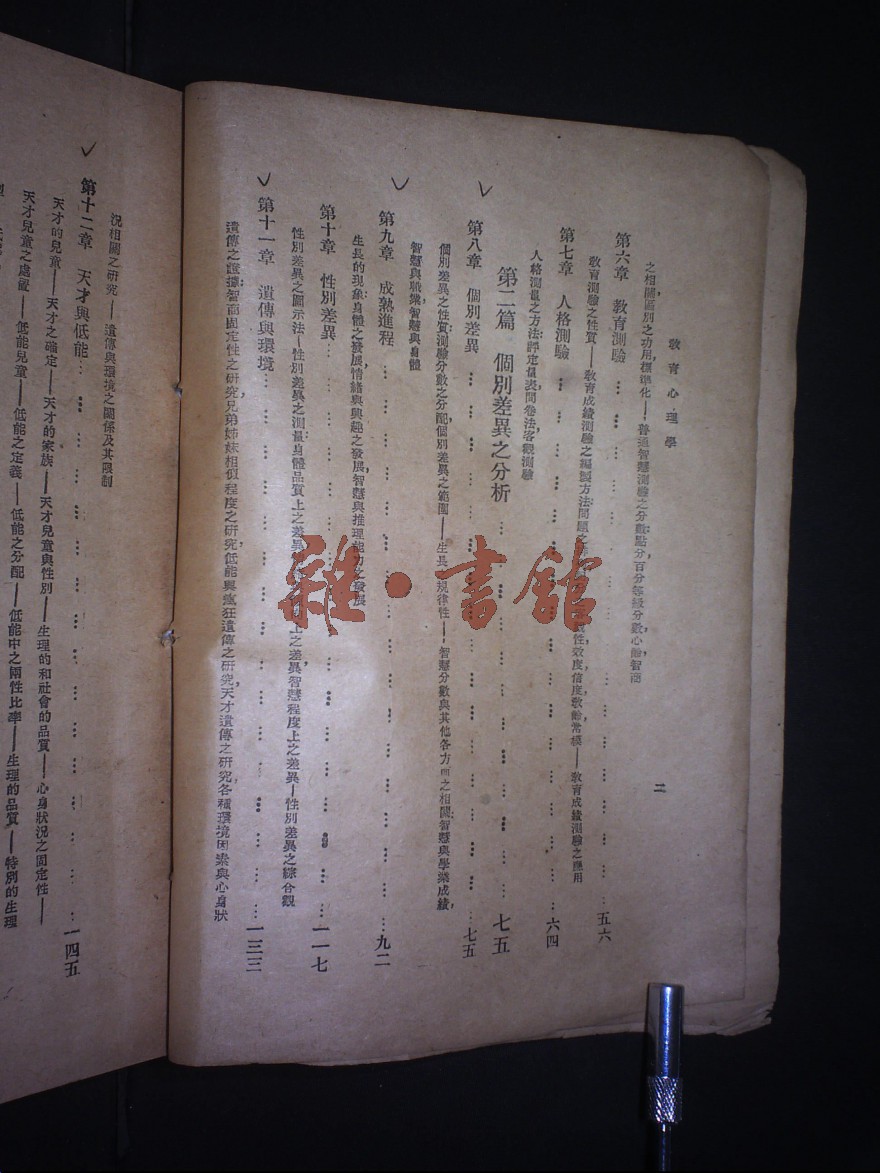 教育心理學
二
之相關區別之功用,標準化——普通智慧測驗之分數:點分,百分等級分數,心齡,智商
第六章 教育測驗……五六
教育測驗之性質——教育成績測驗之編製方法:問題之 性,效度,信度,教齡,常模——教育成績測驗之應用
第七章 人格測驗……六四
人格測量之方法:評定值表,問卷法,客觀測驗
第二篇 個別差異之分析……七五
第八章 個別差異……七五
個別差異之性質:測驗分數之分配,個別差異之範圍——生長之規律性——智慧分數與其他各方面之相關:智慧與學業成績,
智慧與職業,智慧與身體
第九章 成熟進程……九二
生長的現象:身體之發展,情緒與興趣之發展,智慧與推理能力之發展
第十章 性別差異……一一七
性別差異之圖示法——性別差異之測量:身體品質上之差異, 上之差異,智慧程度上之差異——性別差異之綜合觀
第十一章 遺傳與環境……一三三
遺傳之證據:智商固定性之研究,兄弟姊妹相似程度之研究,低能與瘋狂遺傳之研究,天才遺傳之研究,各種環境因素與心身狀
況相關之研究——遺傳與環境之關係及其限制
第十二章 天才與低能……一四五
天才的兒童——天才之確定——天才的家族——天才兒童與性別——生理的和社會的品質——心身狀況之固定性——
天才兒童之處置——低能兒童——低能之定義——低能之分配——低能中之兩性比率——生理的品質——特別的生理
雜·書館